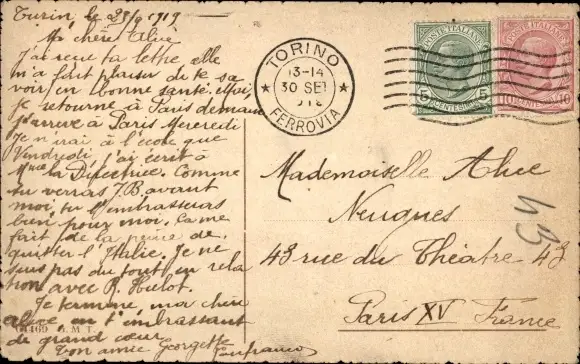 Turin, le 29/9 1919
Ma chère Alice
J'ai reçu ta lettre, elle
m'a fait plaisir de te sa
voir en bonne santé. Moi,
je retourne à Paris demain
j'arrive à Paris Mercredi
Je n'irai à l'école que
Vendredi, j'ai écrit à
Mme la Directrice. Comme
tu verras J.B. avant
moi, tu l'embrasseras
bien pour moi, ça me
fait de la peine de
quitter l'Italie. Je ne
suis pas du tout en rela
tion avec R. Hulot.
Je termine, ma chère
alice en t'embrassant
de grand cœur
Ton amie Georgette
TORINO
13-14
30 SET
FERROVIA
POSTE ITALIANE
5 CENTESIMI 5
POSTE ITALIANE
10 CENTESIMI 10
Mademoiselle Alice
Neugnes
43 rue du Théatre 43
Paris XV France